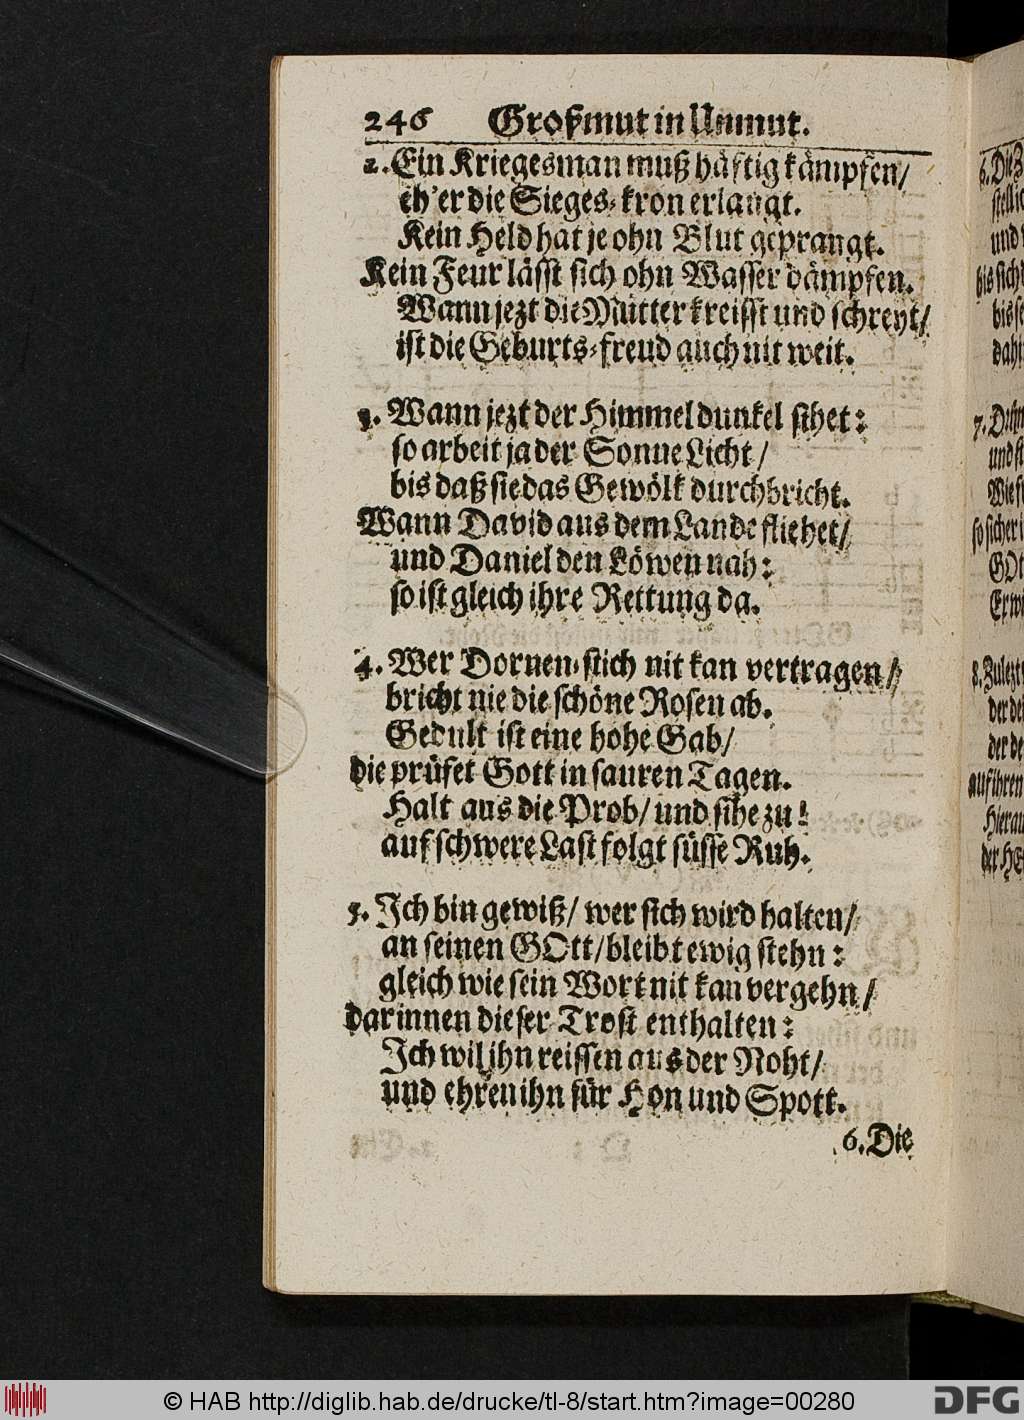 246 Großmut in Unmut.
2. Ein Kriegesman muß häftig kämpfen/
eh' er die Sieges-kron erlangt.
Kein Held hat je ohn Blut geprangt.
Kein Feur lässt sich ohn Wasser dämpfen.
Wann jezt die Mütter kreisst und schreyt/
ist die Geburts-freud auch nit weit.
3. Wann jezt der Himmel dunkel sihet:
so arbeit ja der Sonne Licht/
bis daß sie das Gewölk durchbricht.
Wann David aus dem Lande fliehet/
und Daniel den Löwen nah:
so ist gleich ihre Rettung da.
4. Wer Dornen-stich nit kan vertragen/
bricht nie die schöne Rosen ab.
Gedult ist eine hohe Gab/
die prüfet Gott in sauren Tagen.
Halt aus die Prob/ und sihe zu!
auf schwere Last folgt süsse Ruh.
5. Ich bin gewiß/ wer sich wird halten/
an seinen GOtt/ bleibt ewig stehn:
gleich wie sein Wort nit kan vergehn/
darinnen dieser Trost enthalten:
Ich wil ihn reissen aus der Noht/
und ehren ihn für Hon und Spott.
6. Die
© HAB http://diglib.hab.de/drucke/tl-8/start.htm?image=00280
DFG